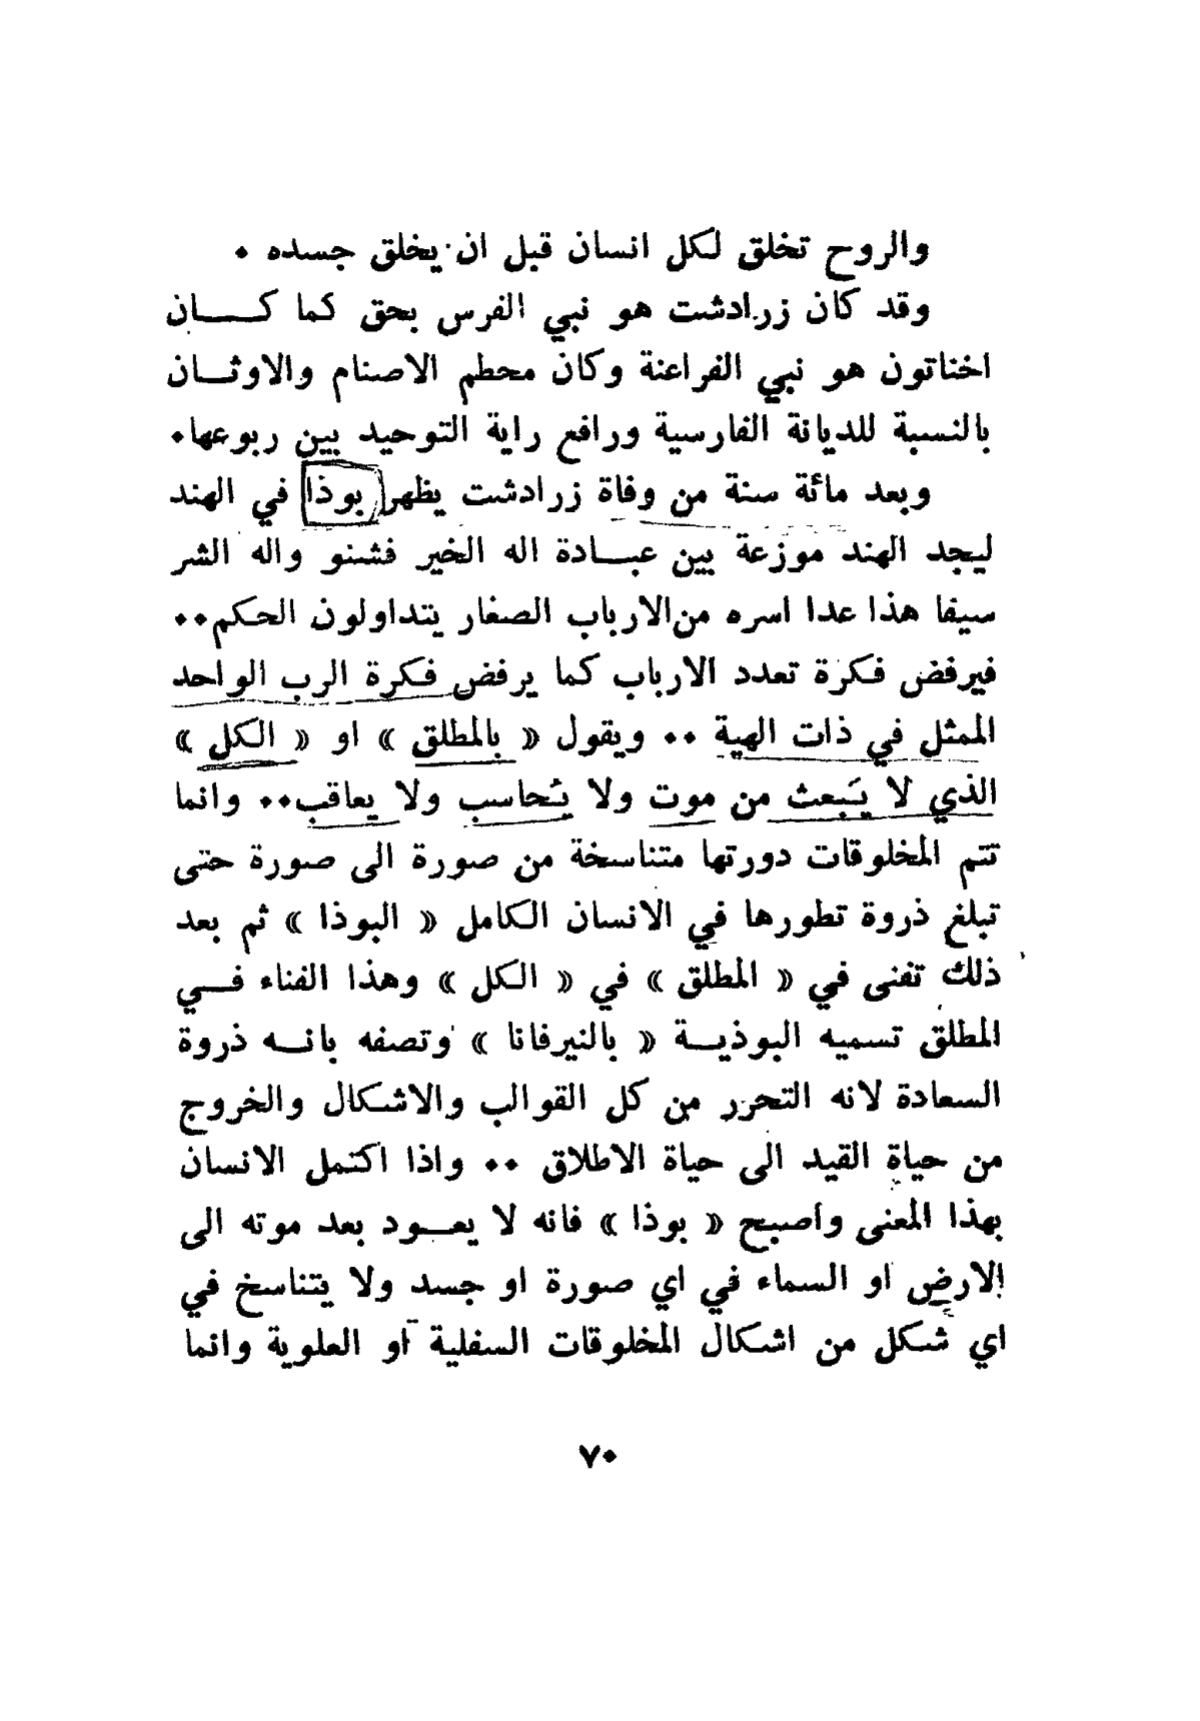 والروح تخلق لكل انسان قبل ان يخلق جسده .
وقد كان زرادشت هو نبي الفرس بحق كما كـــان
اخناتون هو نبي الفراعنة وكان محطم الاصنام والاوثـــان
بالنسبة للديانة الفارسية ورافع راية التوحيد بين ربوعها.
وبعد مائة سنة من وفاة زرادشت يظهر بوذا في الهند
ليجد الهند موزعة بين عبـــادة اله الخير فشنو واله الشر
سيفا هذا عدا اسره من الارباب الصغار يتداولون الحكم..
فيرفض فكرة تعدد الارباب كما يرفض فكرة الرب الواحد
الممثل في ذات الهية .. ويقول « بالمطلق » او « الكل »
الذي لا يَبعث من موت ولا يُحاسب ولا يعاقب.. وانما
تتم المخلوقات دورتها متناسخة من صورة الى صورة حتى
تبلغ ذروة تطورها في الانسان الكامل « البوذا » ثم بعد
ذلك تفنى في « المطلق » في « الكل » وهذا الفناء فـــي
المطلق تسميه البوذيـــة « بالنيرفانا » وتصفه بانـــه ذروة
السعادة لانه التحرر من كل القوالب والاشكال والخروج
من حياة القيد الى حياة الاطلاق .. واذا اكتمل الانسان
بهذا المعنى واصبح « بوذا » فانه لا يعـــود بعد موته الى
الارض او السماء في اي صورة او جسد ولا يتناسخ في
اي شكل من اشكال المخلوقات السفلية او العلوية وانما
٧٠